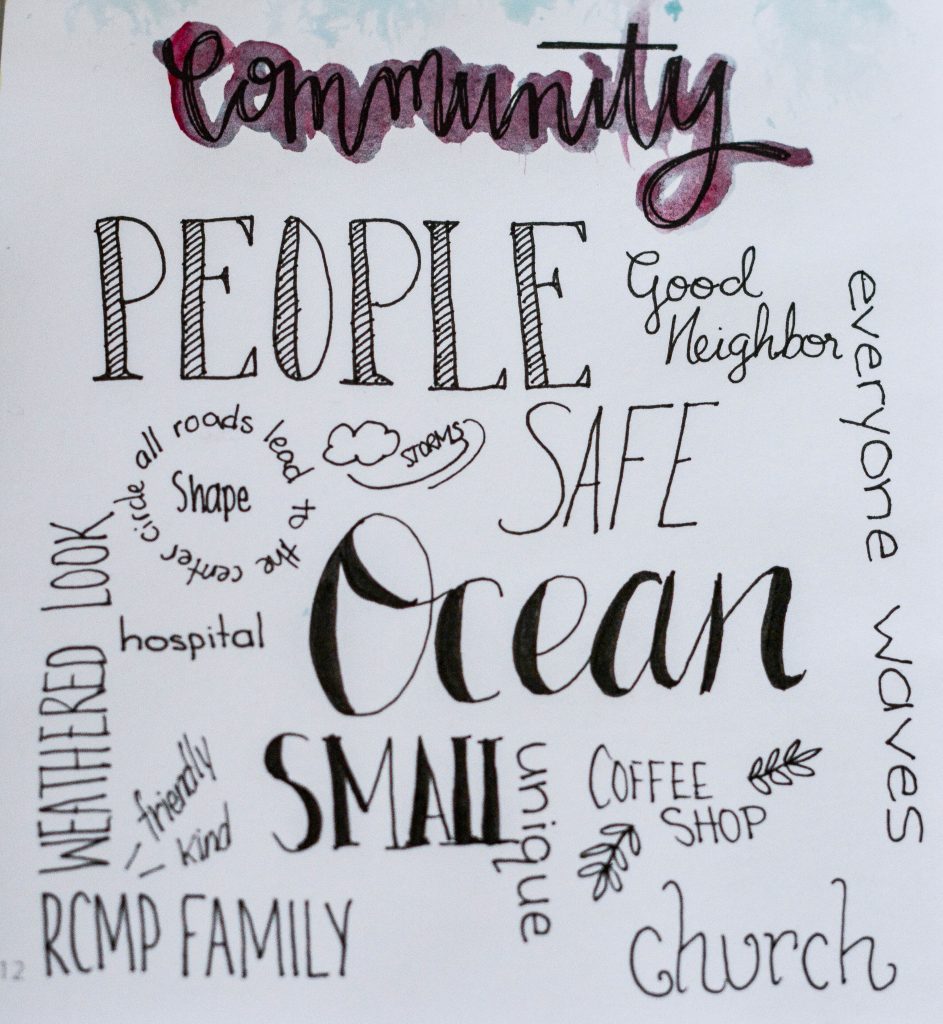 Community
PEOPLE
Good
Neighbor
everyone waves
all roads lead to the center circle
Shape
STORMS
SAFE
WEATHERED LOOK
hospital
Ocean
friendly
kind
SMALL
unique
COFFEE
SHOP
RCMP FAMILY
church
12